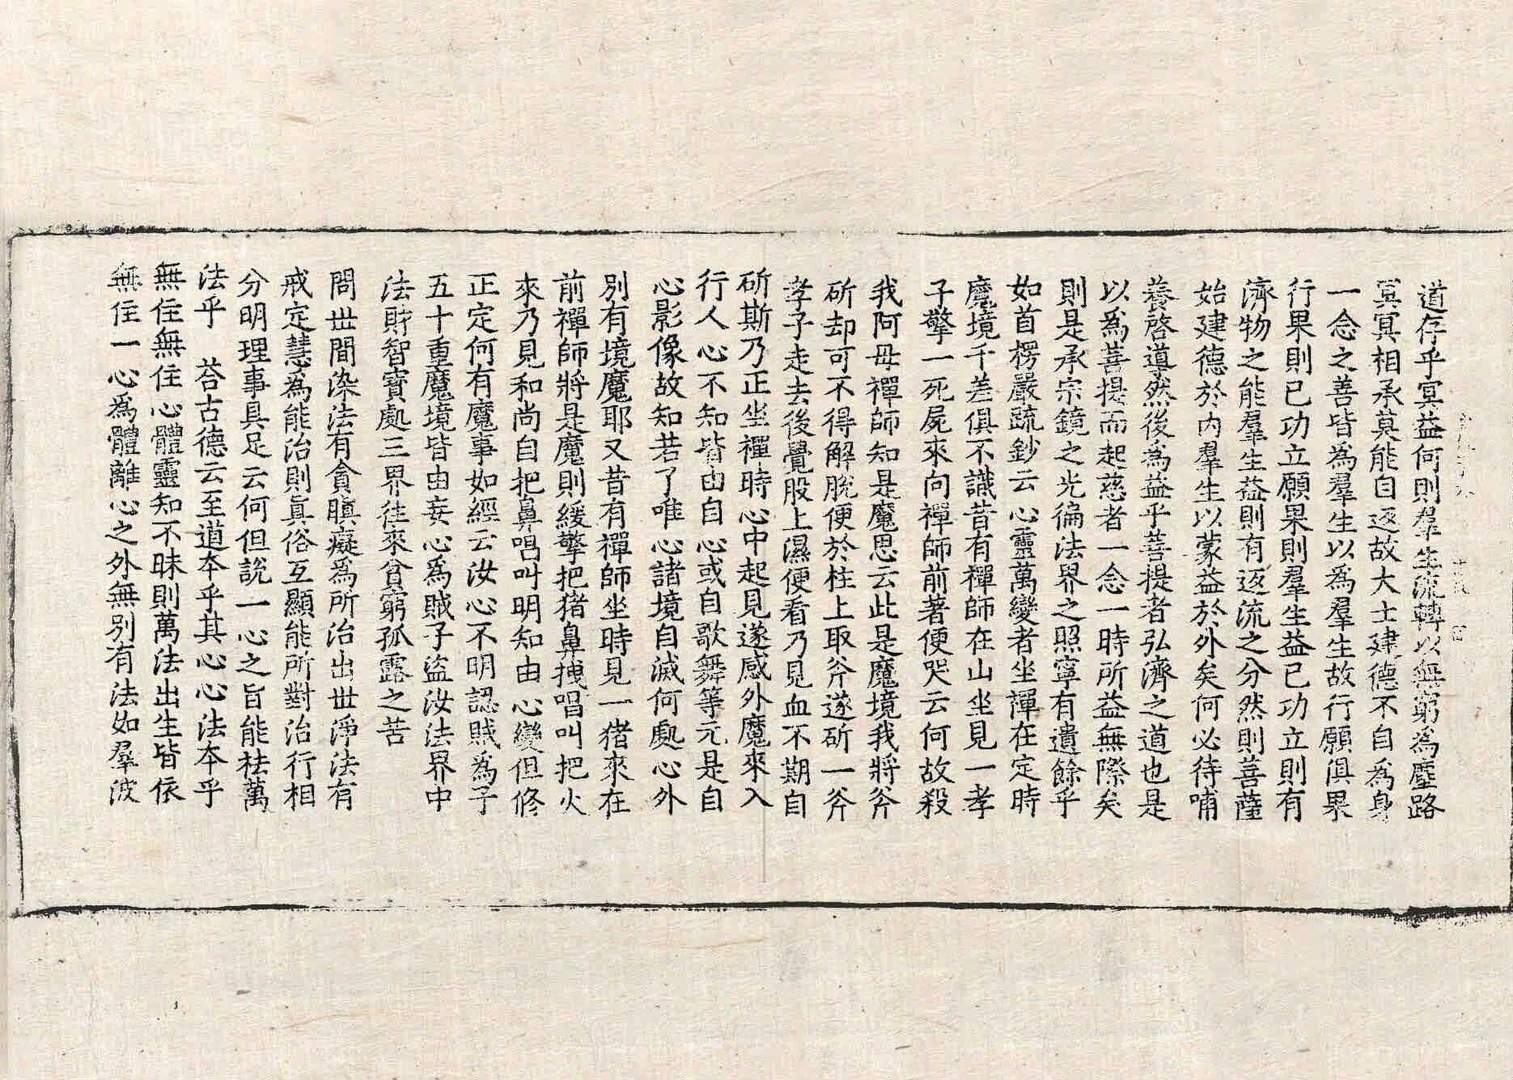 道存乎冥益何則羣生流轉以無窮為塵路
冥冥相承莫能自返故大士建德不自為身
一念之善皆為羣生以為羣生故行願俱果
行果則已功立願果則羣生益已功立則有
濟物之能羣生益則有返流之分然則菩薩
始建德於内羣生以蒙益於外矣何必待哺
養啓導然後為益乎菩提者弘濟之道也是
以為菩提而起慈者一念一時所益無際矣
則是承宗鏡之光徧法界之照寧有遺餘乎
如首楞嚴疏鈔云心靈萬變者坐禪在定時
魔境千差俱不識昔有禪師在山坐見一孝
子擎一死屍來向禪師前著便哭云何故殺
我阿母禪師知是魔思云此是魔境我將斧
斫却可不得解脫便於柱上取斧遂斫一斧
孝子走去後覺股上濕便看乃見血不期自
斫斯乃正坐禪時心中起見遂感外魔來入
行人心不知皆由自心或自歌舞等元是自
心影像故知若了唯心諸境自滅何處心外
別有境魔耶又昔有禪師坐時見一猪來在
前禪師將是魔則緩擎把猪鼻拽唱叫把火
來乃見和尚自把鼻唱叫明知由心變但修
正定何有魔事如經云汝心不明認賊為子
五十重魔境皆由妄心為賊子盜汝法界中
法財智寶處三界往來貧窮孤露之苦
問世間染法有貪瞋癡為所治出世淨法有
戒定慧為能治則真俗互顯能所對治行相
分明理事具足云何但說一心之旨能祛萬
法乎　荅古德云至道本乎其心心法本乎
無住無住心體靈知不昧則萬法出生皆依
無住一心為體離心之外無別有法如羣波